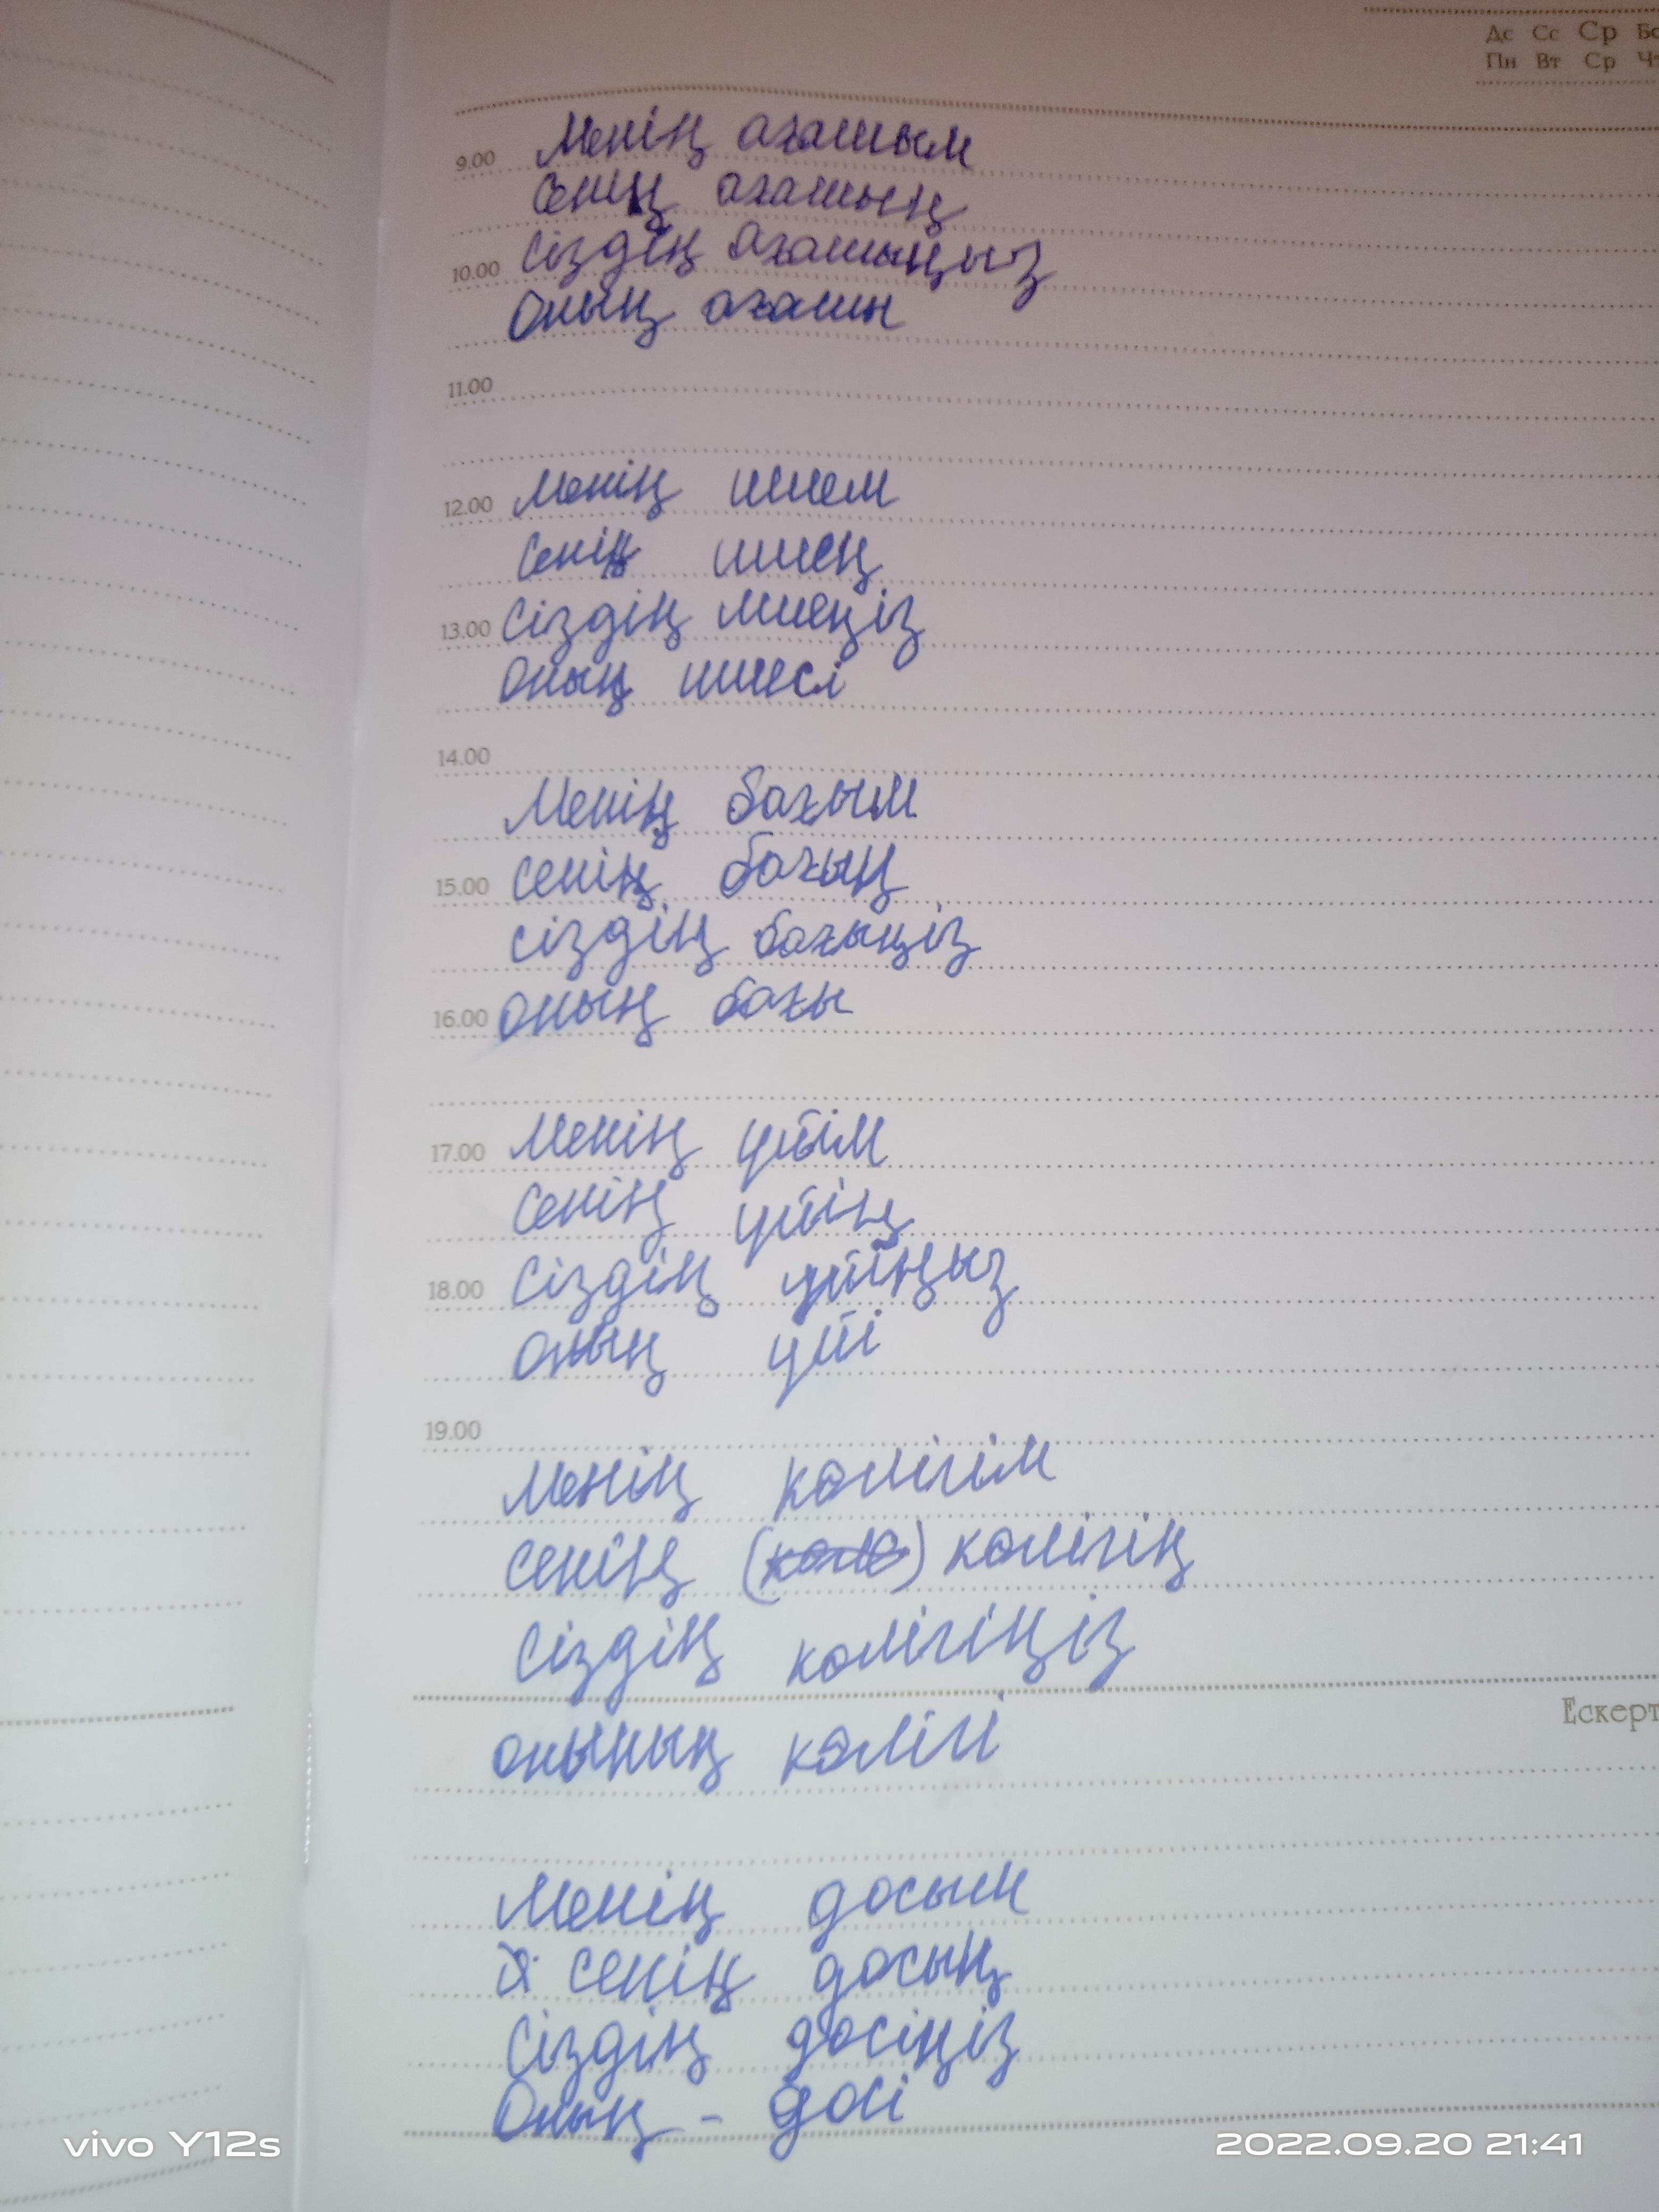 Дс Сс Ср
Пн Вт Ср
9.00 Менің ағашым
Сенің ағашың
10.00 Сіздің ағашыңыз
Оның ағашы
11.00
12.00 Менің шием
Сенің шиең
13.00 Сіздің шиеңіз
Оның шиесі
14.00
Менің бағым
15.00 Сенің бағың
Сіздің бағыңіз
16.00 Оның бағы
17.00 Менің үйім
Сенің үйің
18.00 Сіздің үйіңыз
Оның үйі
19.00
Менің көлігім
Сенің көлігің
Сіздің көлігіңіз
Ескерт
онының көлігі
Менің досым
сенің досың
Сіздің досіңіз
Оның - досі
vivo Y12s 2022.09.20 21:41